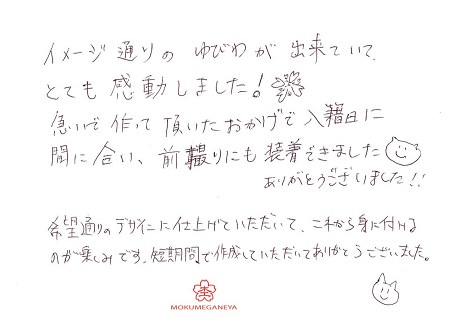 イメージ通りのゆびわが出来ていて、
とても感動しました!
急いで作って頂いたおかげで入籍日に
間に合い、前撮りにも装着できました
ありがとうございました!!
希望通りのデザインに仕上げていただいて、これから身に付ける
のが楽しみです。短期間で作成していただいてありがとうございました。
MOKUMEGANEYA